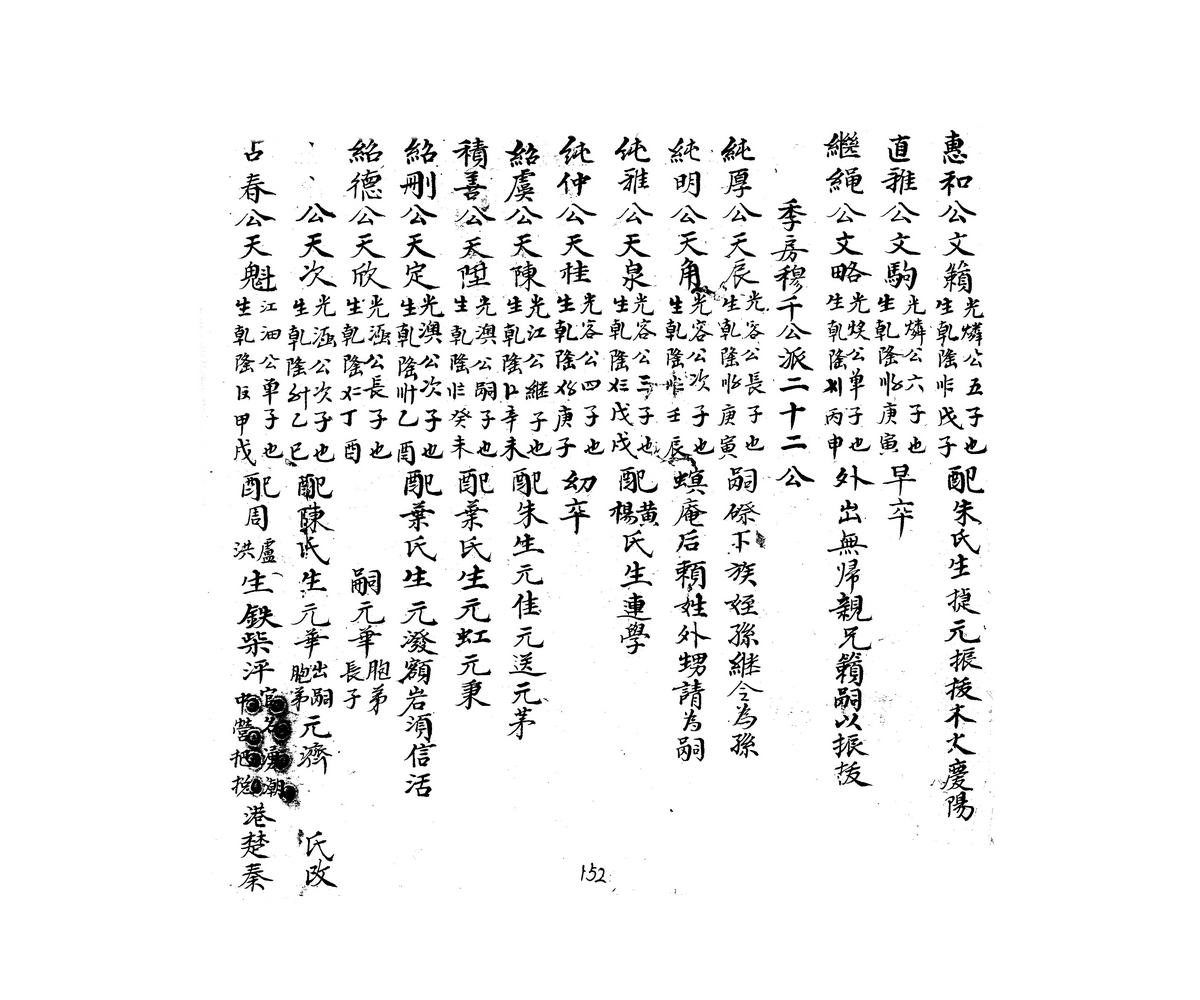 惠和公文籟光燐公五子也生乾隆戊子配朱氏生捷元振拔木大慶陽
直雅公文駒光燐公六子也生乾隆庚寅早卒
繼繩公文略光焕公单子也生乾隆丙申外出無帰親兄籟嗣以振拔
季房穆千公派二十二公
純厚公天辰光容公長子也生乾隆庚寅嗣磜下族姪孫継今為孫
純明公天角光容公次子也生乾隆壬辰螟庵后賴姓外甥請為嗣
純雅公天泉光容公三子也生乾隆戊戌配黄楊氏生連學
純仲公天桂光容公四子也生乾隆庚子幼卒
紹虞公天陳光江公継子也生乾隆辛未配朱生元佳元送元茅
積善公天陞光澳公嗣子也生乾隆癸未配葉氏生元虹元秉
紹刪公天定光澳公次子也生乾隆乙酉配葉氏生元潑額岩須信活
紹德公天欣光湎公長子也生乾隆丁酉嗣元華胞弟長子
公天次光湎公次子也生乾隆乙巳配陳氏生元華出嗣胞弟元濟 氏改
占春公天魁江湎公单子也生乾隆甲戌配周盧洪生鉄柴泙官名潮中營把捴港楚秦
152